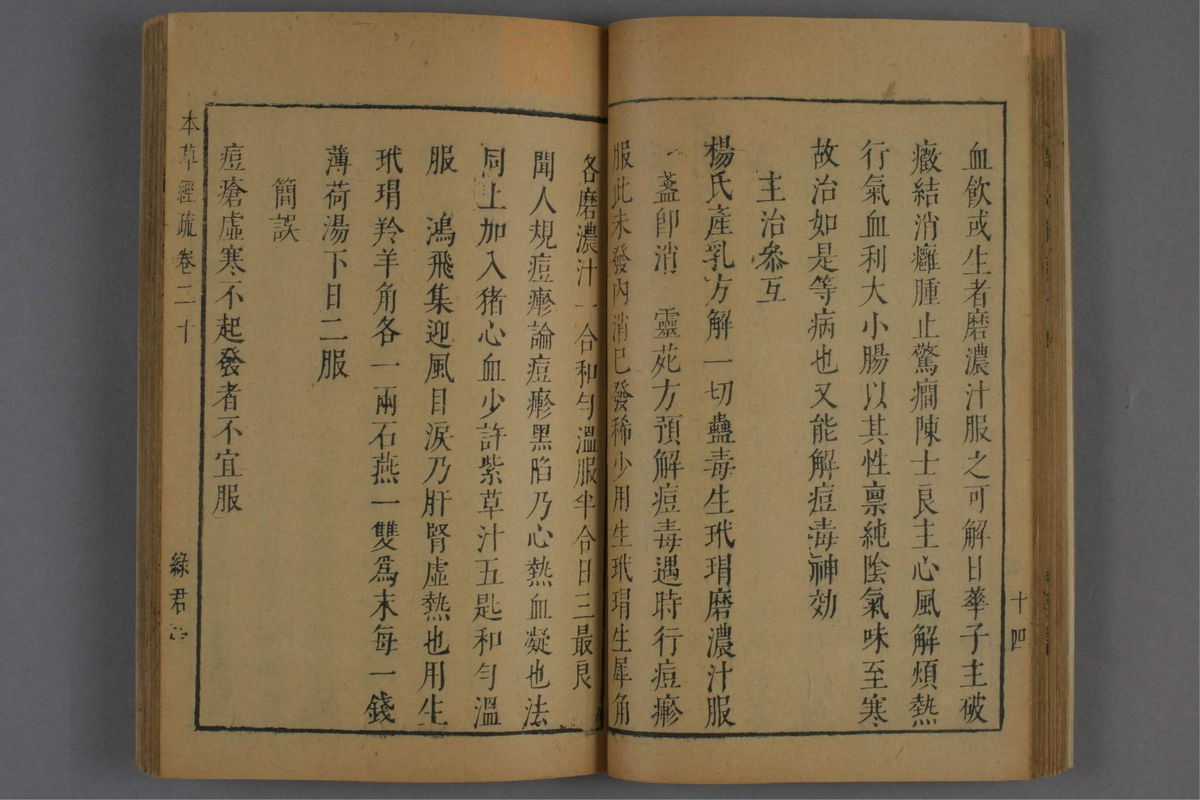 血飲或生者磨濃汁服之可解日華子主破
癥結消癰腫止驚癇陳士良主心風解煩熱
行氣血利大小腸以其性禀純陰氣味至寒
故治如是等病也又能解痘毒神効
主治參互
楊氏產乳方解一切蠱毒生玳瑁磨濃汁服
一盞卽消　靈苑方預解痘毒遇時行痘瘮
服此未發內消已發稀少用生玳瑁生犀角
各磨濃汁一合和勻溫服半合日三最良
聞人規痘瘮論痘瘮黑陷乃心熱血凝也法
同上加入猪心血少許紫草汁五匙和勻溫
服　鴻飛集迎風目淚乃肝腎虛熱也用生
玳瑁羚羊角各一兩石燕一雙為末每一錢
薄荷湯下日二服
簡誤
痘瘡虛寒不起發者不宜服
本草經疏卷二十
綠君
十四